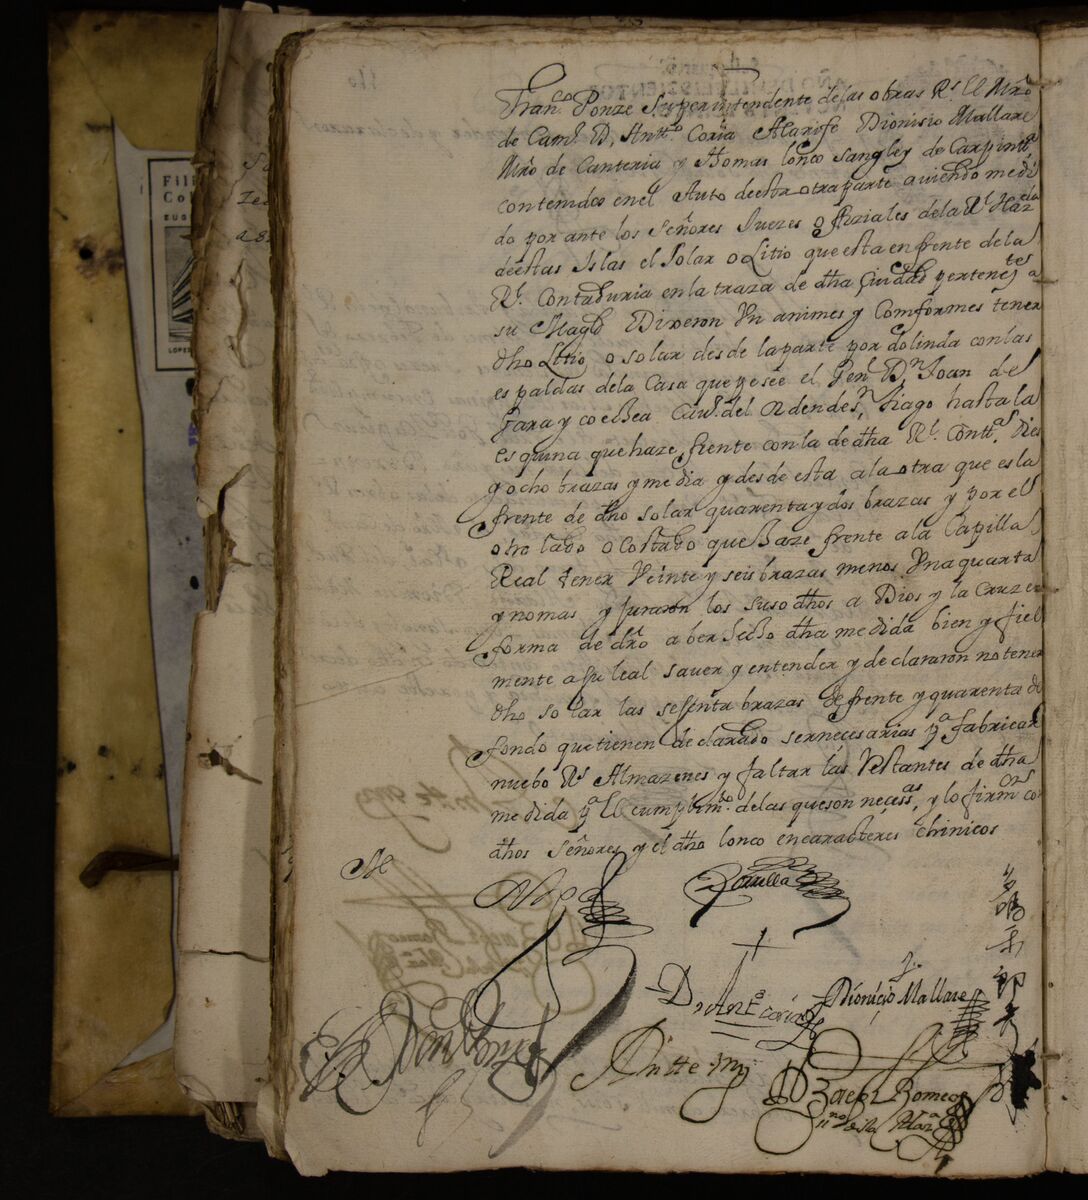 Fran.co Ponze Superintendente delas obras R.s El Mro
de Camp.o D. Antt.o Coria Alarife Dionisio Mallare
Mro de Canteria y Thomas lonco sangley de Carpintt.a
contenidos enel Auto deestra otra parte auiendo medi
do por ante los Señores Juezes ofiziales dela Rl Hazda
deestas Islas el solar o sitio que esta en frente dela
Rl. Contaduria en la traza de dha Ciudad pertenez.te a
su Magd Dixeron Vn animes y Comformes tener
dho sitio o solar desde laparte por dolinda con las
espaldas dela Casa que posée el Genl. Dn Joan de
Gara y coechea Cau.o del orden de Sn tiago hasta la
esquina que haze frente con la de dha Rl. Contt.a Dies
y ocho brazas y media y desde esta ala otra que es la
frente de dho solar quarenta y dos brazas y por el
otro lado o Costado que haze frente ala Capilla
Real tener Veinte y seis brazas menos Vna quarta
y nomas y juraron los suso dhos a Dios y la Cruz en
forma de dro aber hecho dha medida bien y fiel
mente a su leal sauer y entender y declararon no tener
dho solar las sesenta brazas de frente y quarenta de
fondo que tienen declarado ser necesarias p.a fabricar
nuebo Rs Almazenes y faltar las Restantes de dha
medida p.a El cumplim.to delas queson necess.as, y lo firm.on con
dhos Señores y el dho lonco en caracteres chinicos
Zorrilla
Dn Antt.o Coria
Dionicio Mallare
Antte my
Romeo